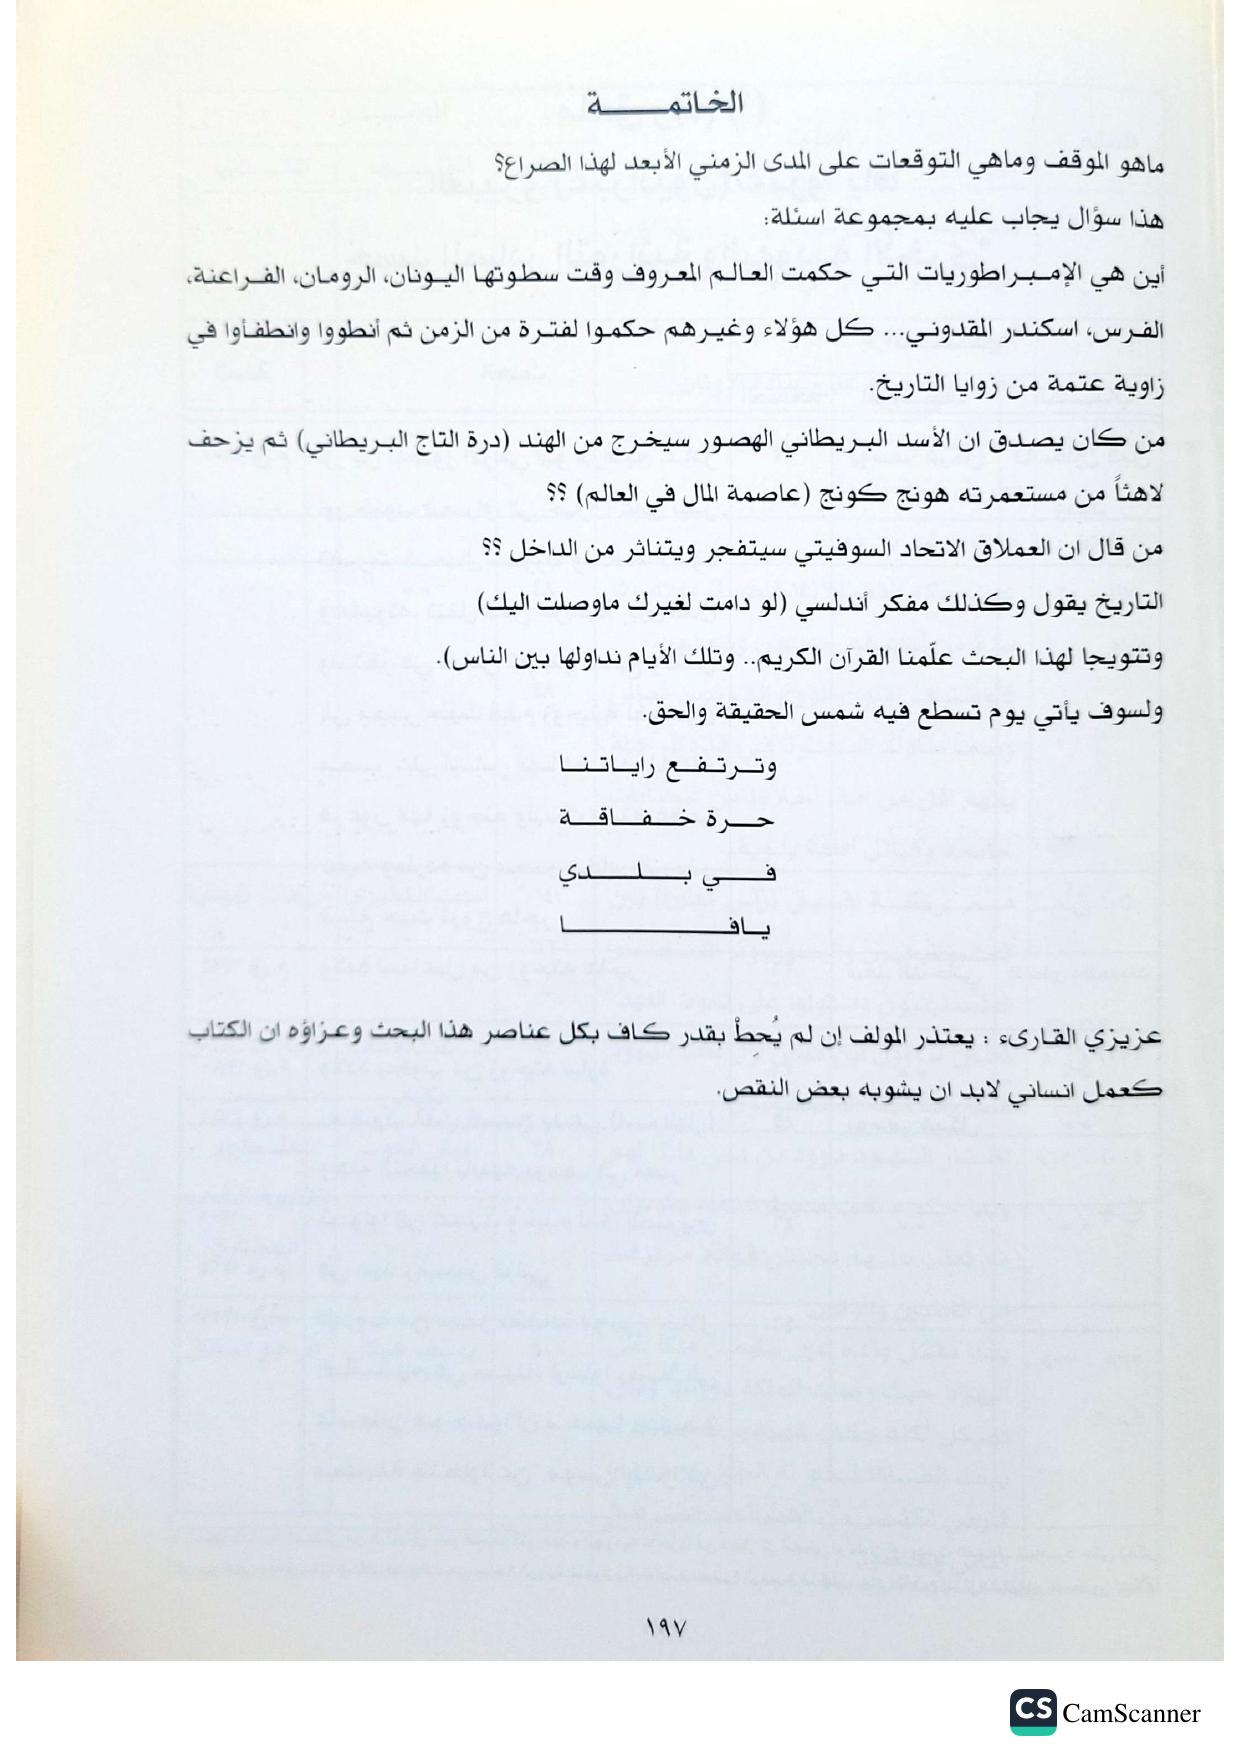 الخاتمـــــــة
ماهو الموقف وماهي التوقعات على المدى الزمني الأبعد لهذا الصراع؟
هذا سؤال يجاب عليه بمجموعة اسئلة:
أين هي الإمبراطوريات التي حكمت العالم المعروف وقت سطوتها اليونان، الرومان، الفراعنة،
الفرس، اسكندر المقدوني... كل هؤلاء وغيرهم حكموا لفترة من الزمن ثم أنطووا وانطفأوا في
زاوية عتمة من زوايا التاريخ.
من كان يصدق ان الأسد البريطاني الهصور سيخرج من الهند (درة التاج البريطاني) ثم يزحف
لاهثاً من مستعمرته هونج كونج (عاصمة المال في العالم) ؟؟
من قال ان العملاق الاتحاد السوفيتي سيتفجر ويتناثر من الداخل ؟؟
التاريخ يقول وكذلك مفكر أندلسي (لو دامت لغيرك ماوصلت اليك)
وتتويجا لهذا البحث علّمنا القرآن الكريم.. وتلك الأيام نداولها بين الناس).
ولسوف يأتي يوم تسطع فيه شمس الحقيقة والحق.
وترتفع راياتنا
حرة خفاقة
في بلدي
يافا
عزيزي القارىء : يعتذر المولف إن لم يُحِطْ بقدر كاف بكل عناصر هذا البحث وعزاؤه ان الكتاب
كعمل انساني لابد ان يشوبه بعض النقص.
١٩٧
CS CamScanner